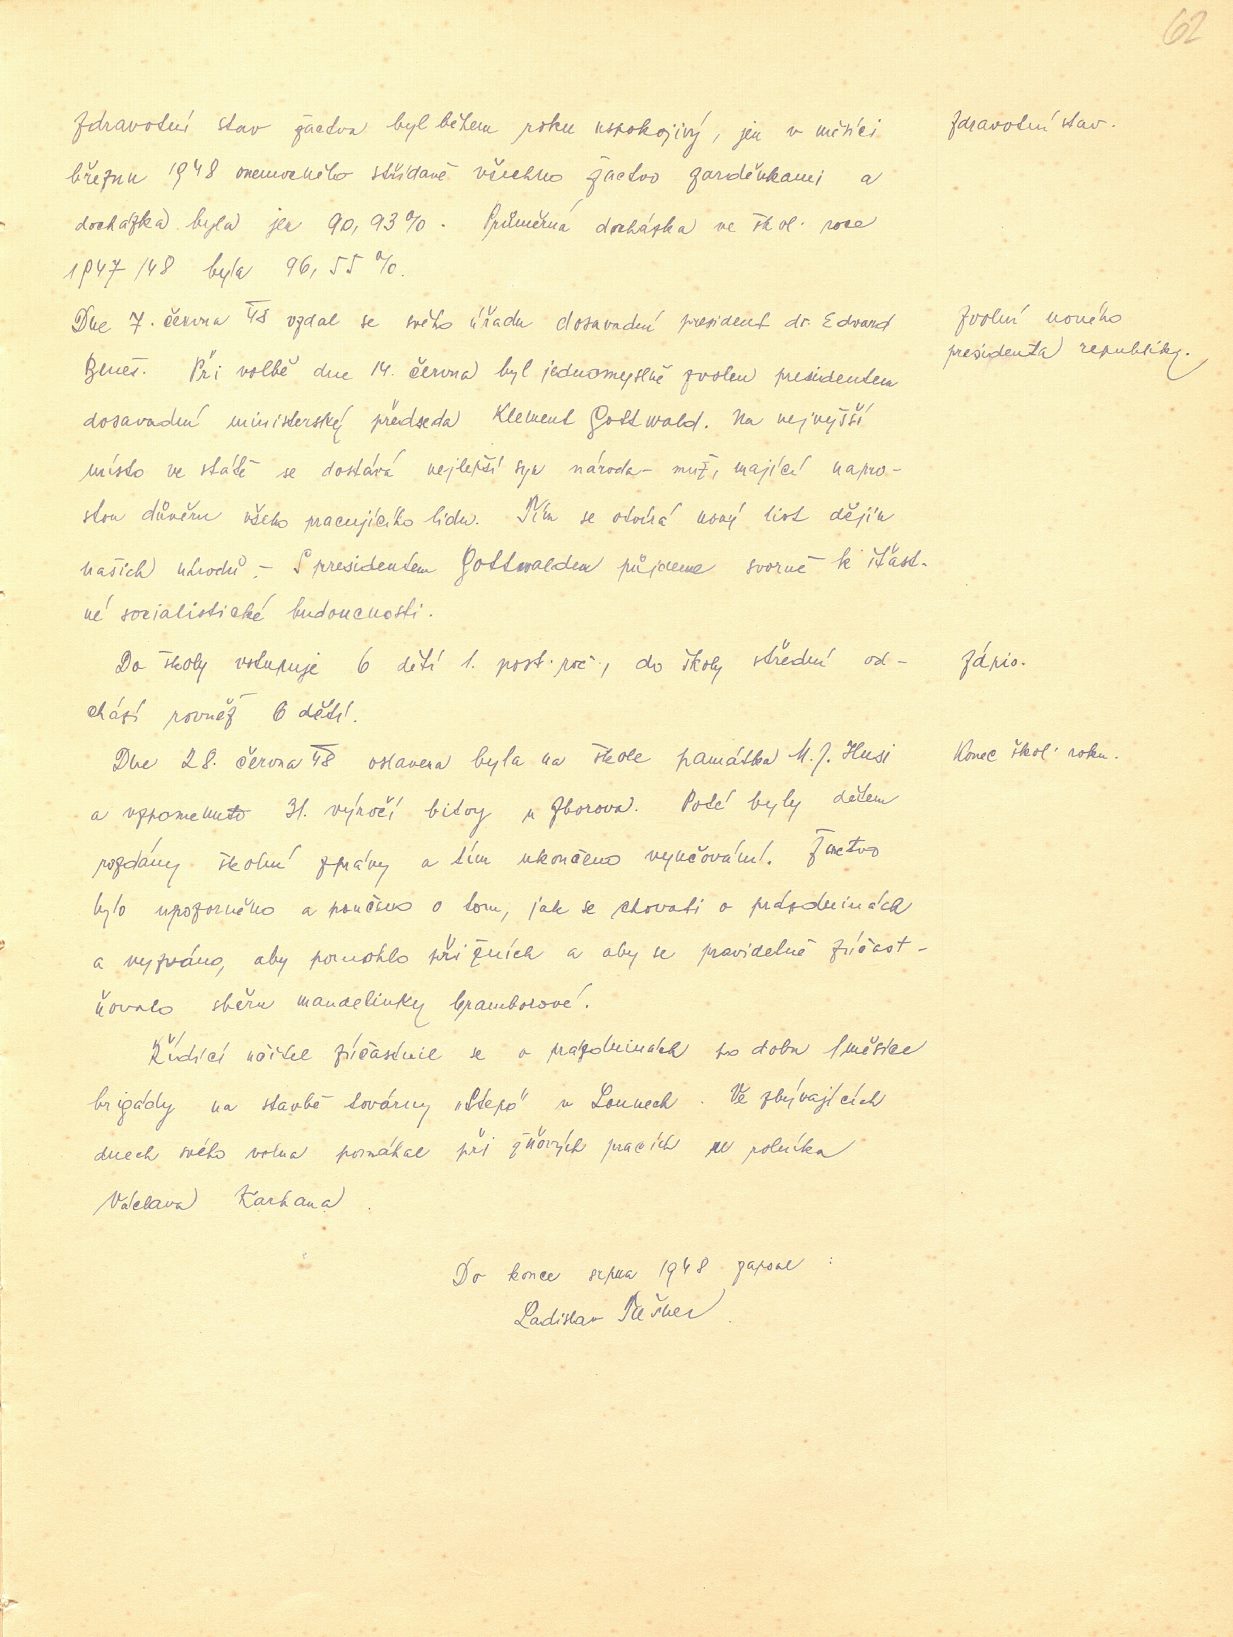 62
Zdravotní stav žactva byl během roku uspokojivý, jen v měsíci
Zdravotní stav.
březnu 1948 onemocnělo střídavě všechno žactvo zarděnkami a
docházka byla jen 90,93%. Průměrná docházka ve škol. roce
1947/48 byla 96,55%.
Dne 7. června 48 vzdal se svého úřadu dosavadní president dr. Edvard
Zvolní nového
Beneš. Při volbě dne 14. června byl jednomyslně zvolen presidentem
presidenta republiky.
dosavadní ministerský předseda Klement Gottwald. Na nejvyšší
místo ve státě se dostává nejlepší syn národa - muž, mající napro-
stou důvěru všeho pracujícího lidu. Tím se otvírá nový list dějin
našich národů. - S presidentem Gottwaldem půjdeme svorně k šťast-
né socialistické budoucnosti.
Do školy vstupuje 6 dětí 1. post. roč., do školy střední od-
Zápis.
chází rovněž 6 dětí.
Dne 28. června 48 oslavena byla na škole památka M. J. Husi
Konec škol. roku.
a vzpomenuto 31. výročí bitvy u Zborova. Poté byly dětem
rozdány školní zprávy a tím ukončeno vyučování. Žactvo
bylo upozorněno a poučeno o tom, jak se chovati o prázdninách
a vyzváno, aby pomohlo při žních a aby se pravidelně zúčast-
ňovalo sběru mandelinky bramborové.
Řídící učitel zúčastnil se o prázdninách po dobu 1 měsíce
brigády na stavbě továrny v Lounech. Ve zbývajících
dnech svého volna pomáhal při žňových pracích u rolníka
Václava Karhana.
Do konce srpna 1948 zapsal :
Ladislav